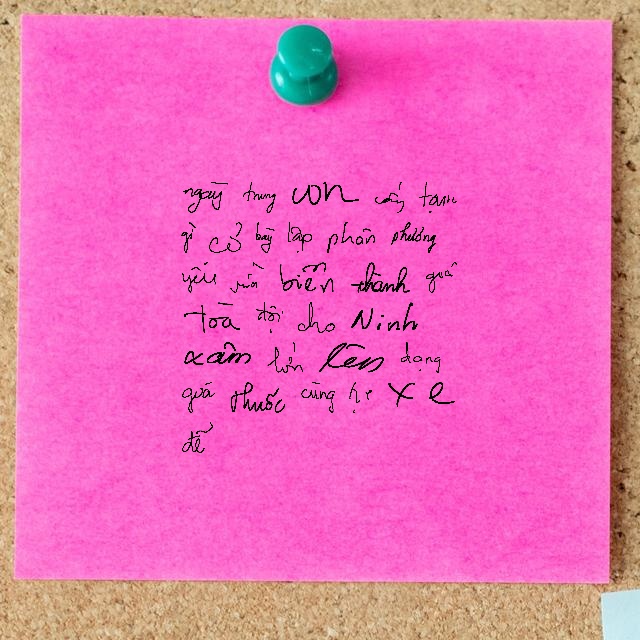 ngay trung con cấy tạm
gì cổ bảy lập phần phương
yếu vừa biển thành quá
toà đội cho Ninh
xâm lớn lên dạng
quá thuốc cũng hẹ xe
để